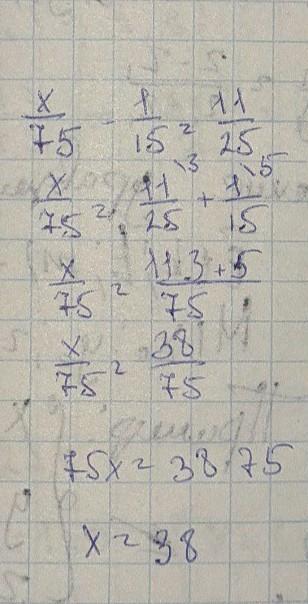 x/75 - 1/15 = 11/25
x/75 = 11\3/25 + 1\5/15
x/75 = 11·3+5/75
x/75 = 38/75
75x = 38 75
x = 38